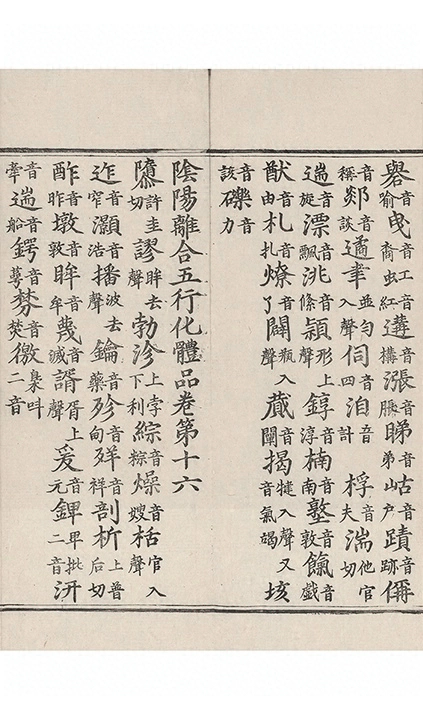 音喻曳音裔虫音工紅遘音構漲音脹睇音弟岵音戶蹟音跡儞
音稱郯音談遹聿音並匀入聲伺音四洎音吾計桴音夫湍他官切
遄音旋漂音飄洮音絛頴音形上錞音淳楠音南墪音敦餼音戲
猷音由札音扎燎音了闢音瓶入聲蕆音闡揭音犍入聲又音氣竭垓
音該礫音力
陰陽離合五行化體品卷第十六
隳許圭切謬眸去聲勃沴上孛下利綜音粽燥音嫂栝音官入聲
迮音窄灝音浩播波去聲鑰音藥殄音甸音祥剖析上普后切
酢音昨墩音敦眸音牟蔑音滅諝音胥上聲爰音元音批二音汧
音牽遄音船鍔音萼棼音焚徼音梟叫二音